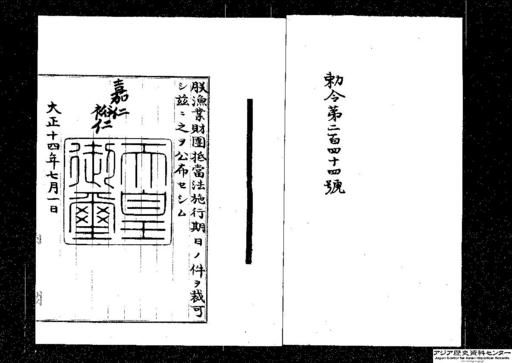 勅令第二百四十四號
朕漁業財團抵當法施行期日ノ件ヲ裁可
シ茲ニ之ヲ公布セシム
嘉仁
裕仁
天皇
御璽
大正十四年七月一日
アジア歴史資料センター
Japan Center for Asian Historical Records